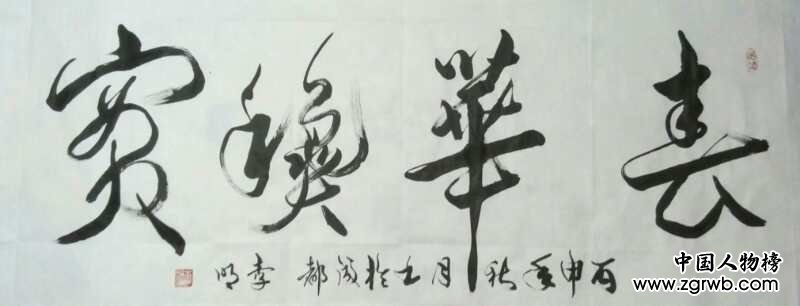 春華穐實
丙申年秋月 於 都 李明
中国人物榜
www.zgrwb.com